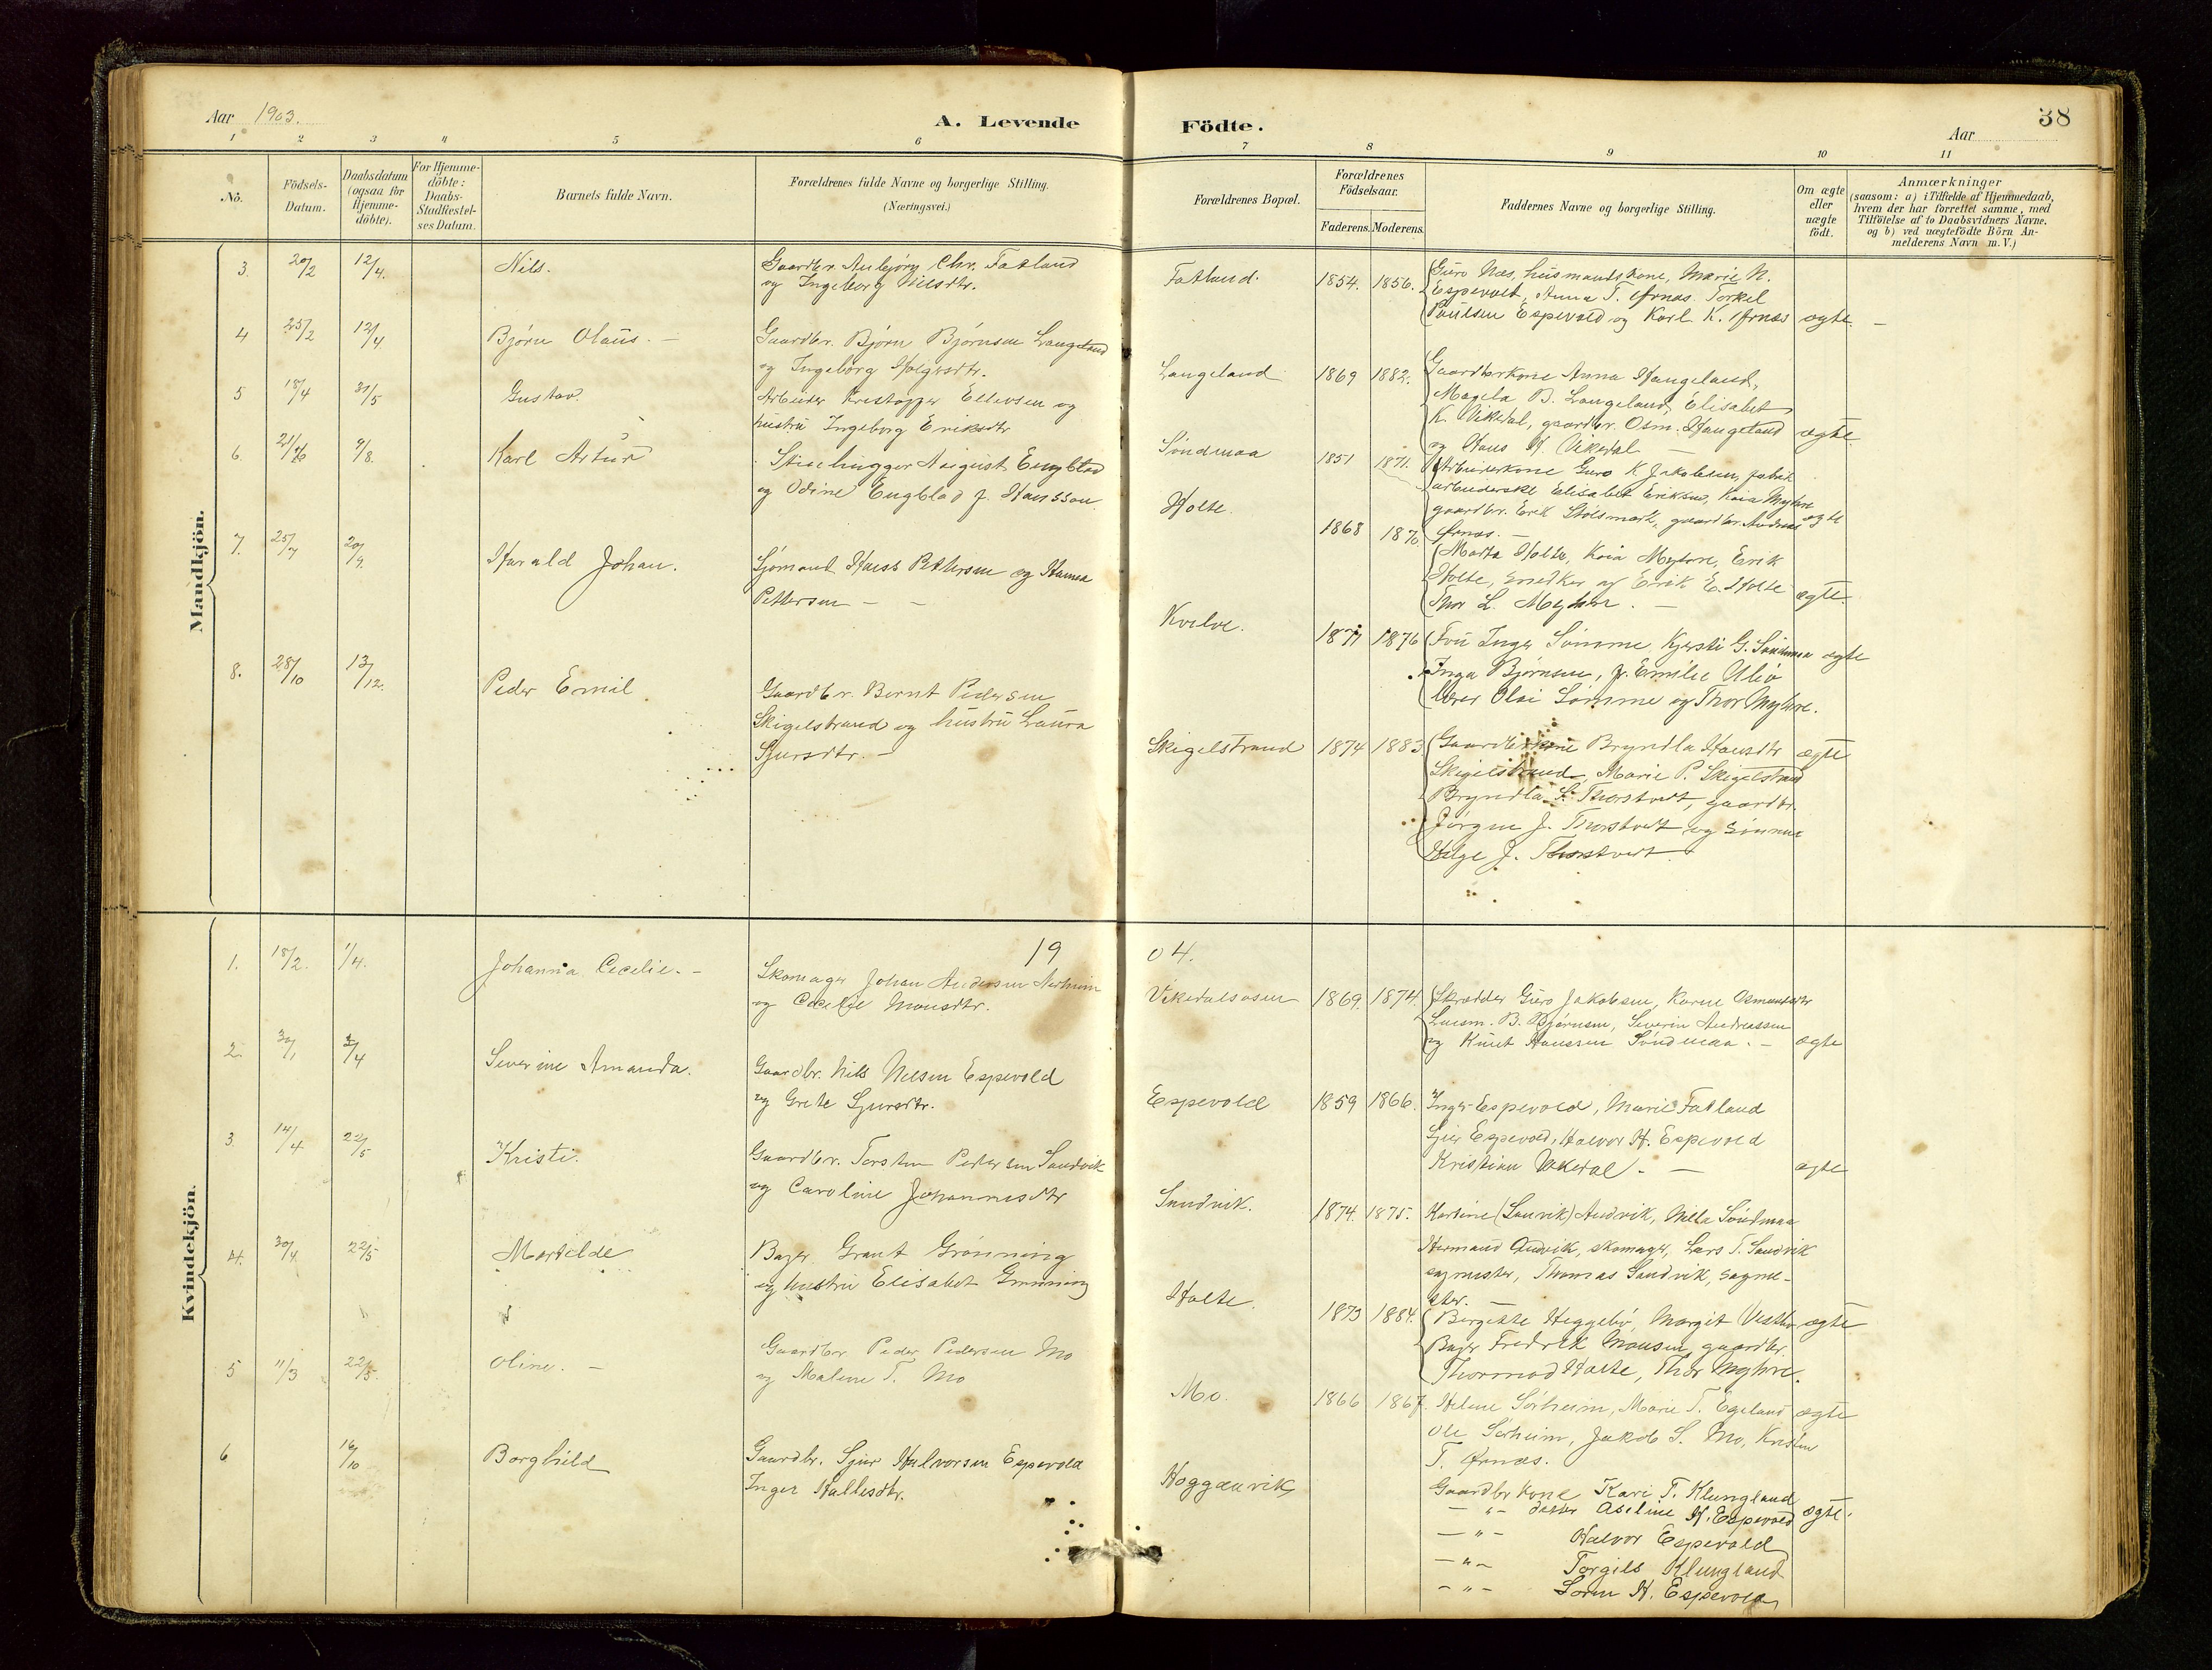 Aar 1903.
A. Levende
Födte.
38
Aar
1 2 3 4 5 6 7 8 9 10 11
No.
Födsels-Datum.
Daabsdatum (ogsaa for Hjemme-döbte).
For Hjemme-döbte: Daabs-Stadfæstel-ses Datum.
Barnets fulde Navn.
Forældrenes fulde Navne og borgerlige Stilling.
(Næringsvei.)
Forældrenes Bopæl.
Forældrenes Födselsaar.
Faderens. Moderens.
Faddernes Navne og borgerlige Stilling.
Om ægte eller uægte födt.
Anmærkninger
(saasom: a) i Tilfælde af Hjemmedaab,
hvem der har forrettet samme, med
Tilföielse af to Daabsvidners Navne.
og b) ved uægtefödte Börn An-
melderens Navn m. V.)
Mandkjön.
3. 20/2 12/4. Nils.
Gaardbr. Anbjørg Chr. Fatland
og Ingeborg Nilsdtr.
Fatland. 1854. 1856.
Guro Næs, husmandskone, Marie N.
Espevolt, Anna T. Ørnæs, Torkel
Poulsen Espevold og Karl K. Ørnæs ægte. –
4 25/2 12/4 Bjørn Olaus. –
Gaardbr. Bjørn Bjørnsen Langeland
og Ingeborg Holgersdtr.
Langeland 1869 1882.
Gaardbrkone Anna Haugeland,
Magela B. Langeland, Elisabet
K. Vikedal, gaardbr. Osm. Haugeland ægte
og Hans H. Vikedal –
5 18/4 31/5 Gustav.
Arbeider Kristoffer Ellevsen og
hustru Ingeborg Eriksdtr
Søndenaa 1851 1871.
Arbeiderkone Guro K Jakobsen, fabrik
arbeiderske Elisabet Eriksen, Kaia Myhre
gaardbr. Erik Stølsmark, gaardbr. Andreas ægte
Ørnæs. –
6. 9/8. Karl Artur
Stenhugger August Engblad
og Odine Engblad f. Hansson
Holte. 1868 1870
Marta Holte, Kaia Myhre, Erik
Holte, snedker og Erik E. Holte ægte.
Thor L. Myhre. –
7. 25/7 20/9. Harald Johan.
Sjømand Hans Pettersen og Hanna
Pettersen – –
Kvelve. 1871 1876
Fru Inger Sømme, Kjersti G. Søndenaa ægte
Inga Bjørnsen, J. Emilie Ulio
lærer Olai Sømme og Thor Myhre.
8. 28/10 13/12. Peder Emil
Gaardbr. Bernt Pedersen
Skigelstrand og hustru Laura
Sjursdtr. –
Skigelstrand 1874 1883
Gaardbrkone Bryndla Hansdtr ægte
Skigelstrand, Marie P. Skigelstrand
Bryndla S. Thorstvedt, gaardbr.
Jørgen J. Thorstvedt og sønnen
Helge J. Thorstvedt.
Kvindekjön.
1904.
1. 18/2. 1/4. Johanna Cecelie. –
Skomager Johan Andersen Nerheim
og Cecelie Monsdtr.
Vikedalsosen 1869. 1874.
Skrædder Guro Jakobsen, Karen Osmundsdtr
Lensm. B. Bjørnsen, Severin Andreassen
og Knut Hanssen Søndenaa. – ægte
2. 30/1 3/4 Severine Amanda.
Gaardbr. Nils Nilsen Espevold
og Grete Sjursdtr.
Espevold 1859 1866.
Inger Espevold, Marie Fatland
Sjur Espevold, Halvor H. Espevold
Kristian Vikedal. – ægte
3. 14/4 22/5 Kristi.
Gaardbr. Torsten Pedersen Sandvik
og Caroline Johannesdtr
Sandvik. 1874. 1875.
Martine (Sanvik) Andvik, Mella Søndenaa
Hermand Andvik, skomager, Lars T. Sandvik
sagmester, Thomas Sandvik, sagme-
ster. –
4. 30/4 22/5 Martilde
Bager Grant Grønning
og hustru Elisabet Grønning
Holte. 1873 1884.
Bergitte Heggebø, Margit Vestbø ægte
Bager Fredrik Monsen, gaardbr.
Thormod Holte, Thor Myhre.
5 11/3 22/5. Oline. –
Gaardbr Peder Pedersen Mo
og Malene T. Mo
Mo. 1866 1867.
Helene Sørheim, Marie T. Egeland ægte
Ole Sørheim, Jakob S. Mo, Kristen
T. Ørnæs.
6 16/10 Borghild
Gaardbr. Sjur Halvorsen Espevold
Inger Kallesdtr.
Hoggenvik
Gaardbr kone Kari T. Klungland
– " – datter Aseline H. Espevold ægte.
– " – Halvor Espevold
– " – Torgils Klungland
– " – Søren H. Espevold